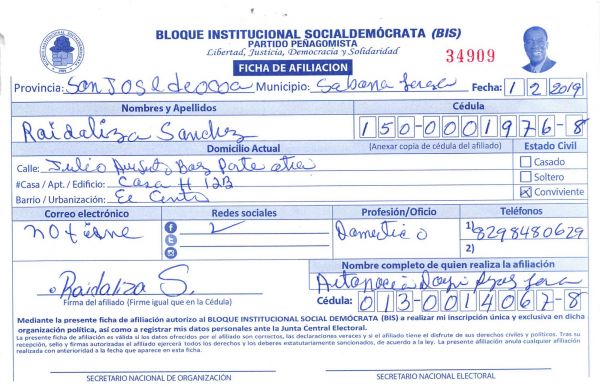 BLOQUE INSTITUCIONAL SOCIALDEMÓCRATA (BIS)
PARTIDO PEÑAGOMISTA
Libertad, Justicia, Democracia y Solidaridad
34909
FICHA DE AFILIACION
Provincia: San Jose de ocoa Municipio: Sabana Larga Fecha: 1 2 2019
Nombres y Apellidos Cédula
Raidaliza Sanchez 150-0001976-8
Domicilio Actual (Anexar copia de cédula del afiliado) Estado Civil
Calle: Julio Parte atra
#Casa / Apt. / Edificio: Casa # 123
Barrio / Urbanización: El Centro
Casado
Soltero
Conviviente
Correo electrónico Redes sociales Profesión/Oficio Teléfonos
no tiene Domestic o 1) 8298480629
2)
Nombre completo de quien realiza la afiliación
Raidaliza S.
Firma del afiliado (Firme igual que en la Cédula)
Cédula: 013-0014067-8
Mediante la presente ficha de afiliación autorizo al BLOQUE INSTITUCIONAL SOCIAL DEMÓCRATA (BIS) a realizar mi inscripción única y exclusiva en dicha
organización política, así como a registrar mis datos personales ante la Junta Central Electoral.
La presente ficha de afiliación es válida si los datos ofrecidos por el afiliado son correctos, las declaraciones veraces y si el afiliado tiene el disfrute de sus derechos civiles y políticos. Tras su
recepción, sello y firmas autorizadas el afiliado ejercerá todos los derechos y los deberes estatutariamente sancionados, de acuerdo a la ley. La presente afiliación anula cualquier afiliación
realizada con anterioridad a la fecha que aparece en esta ficha.
SECRETARIO NACIONAL DE ORGANIZACIÓN SECRETARIO NACIONAL ELECTORAL